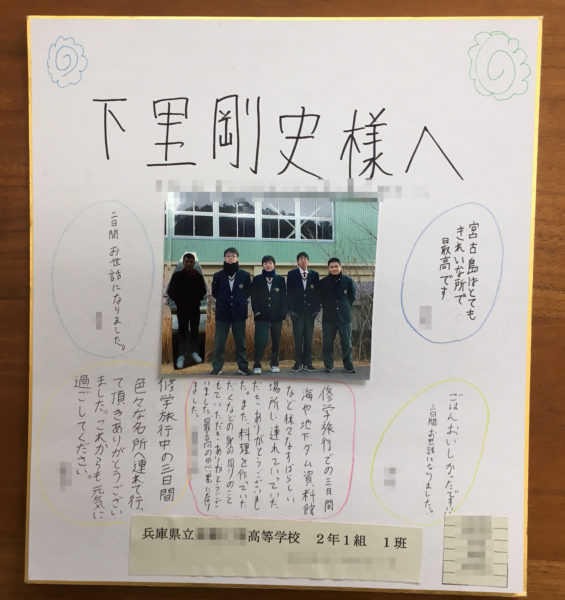 下里剛史様へ
宮古島はとても
きれいな所で
最高です
二日間お世話になりました。
ごはんおいしかったです!!
三日間お世話になりました。
修学旅行での三日間
海や地下ダム資料館
など様々なすばらしい
場所に連れていっていた
だき、ありがとうございまし
た。また、料理を作っていた
だくなどの身の周りのこと
もしていただき、ありがとうござ
いました。最高の思い出になり
ました。
修学旅行中の三日間
色々な名所へ連れて行っ
て頂きありがとうござい
ました。これからも元気に
過ごしてください。
兵庫県立 高等学校 2年1組 1班